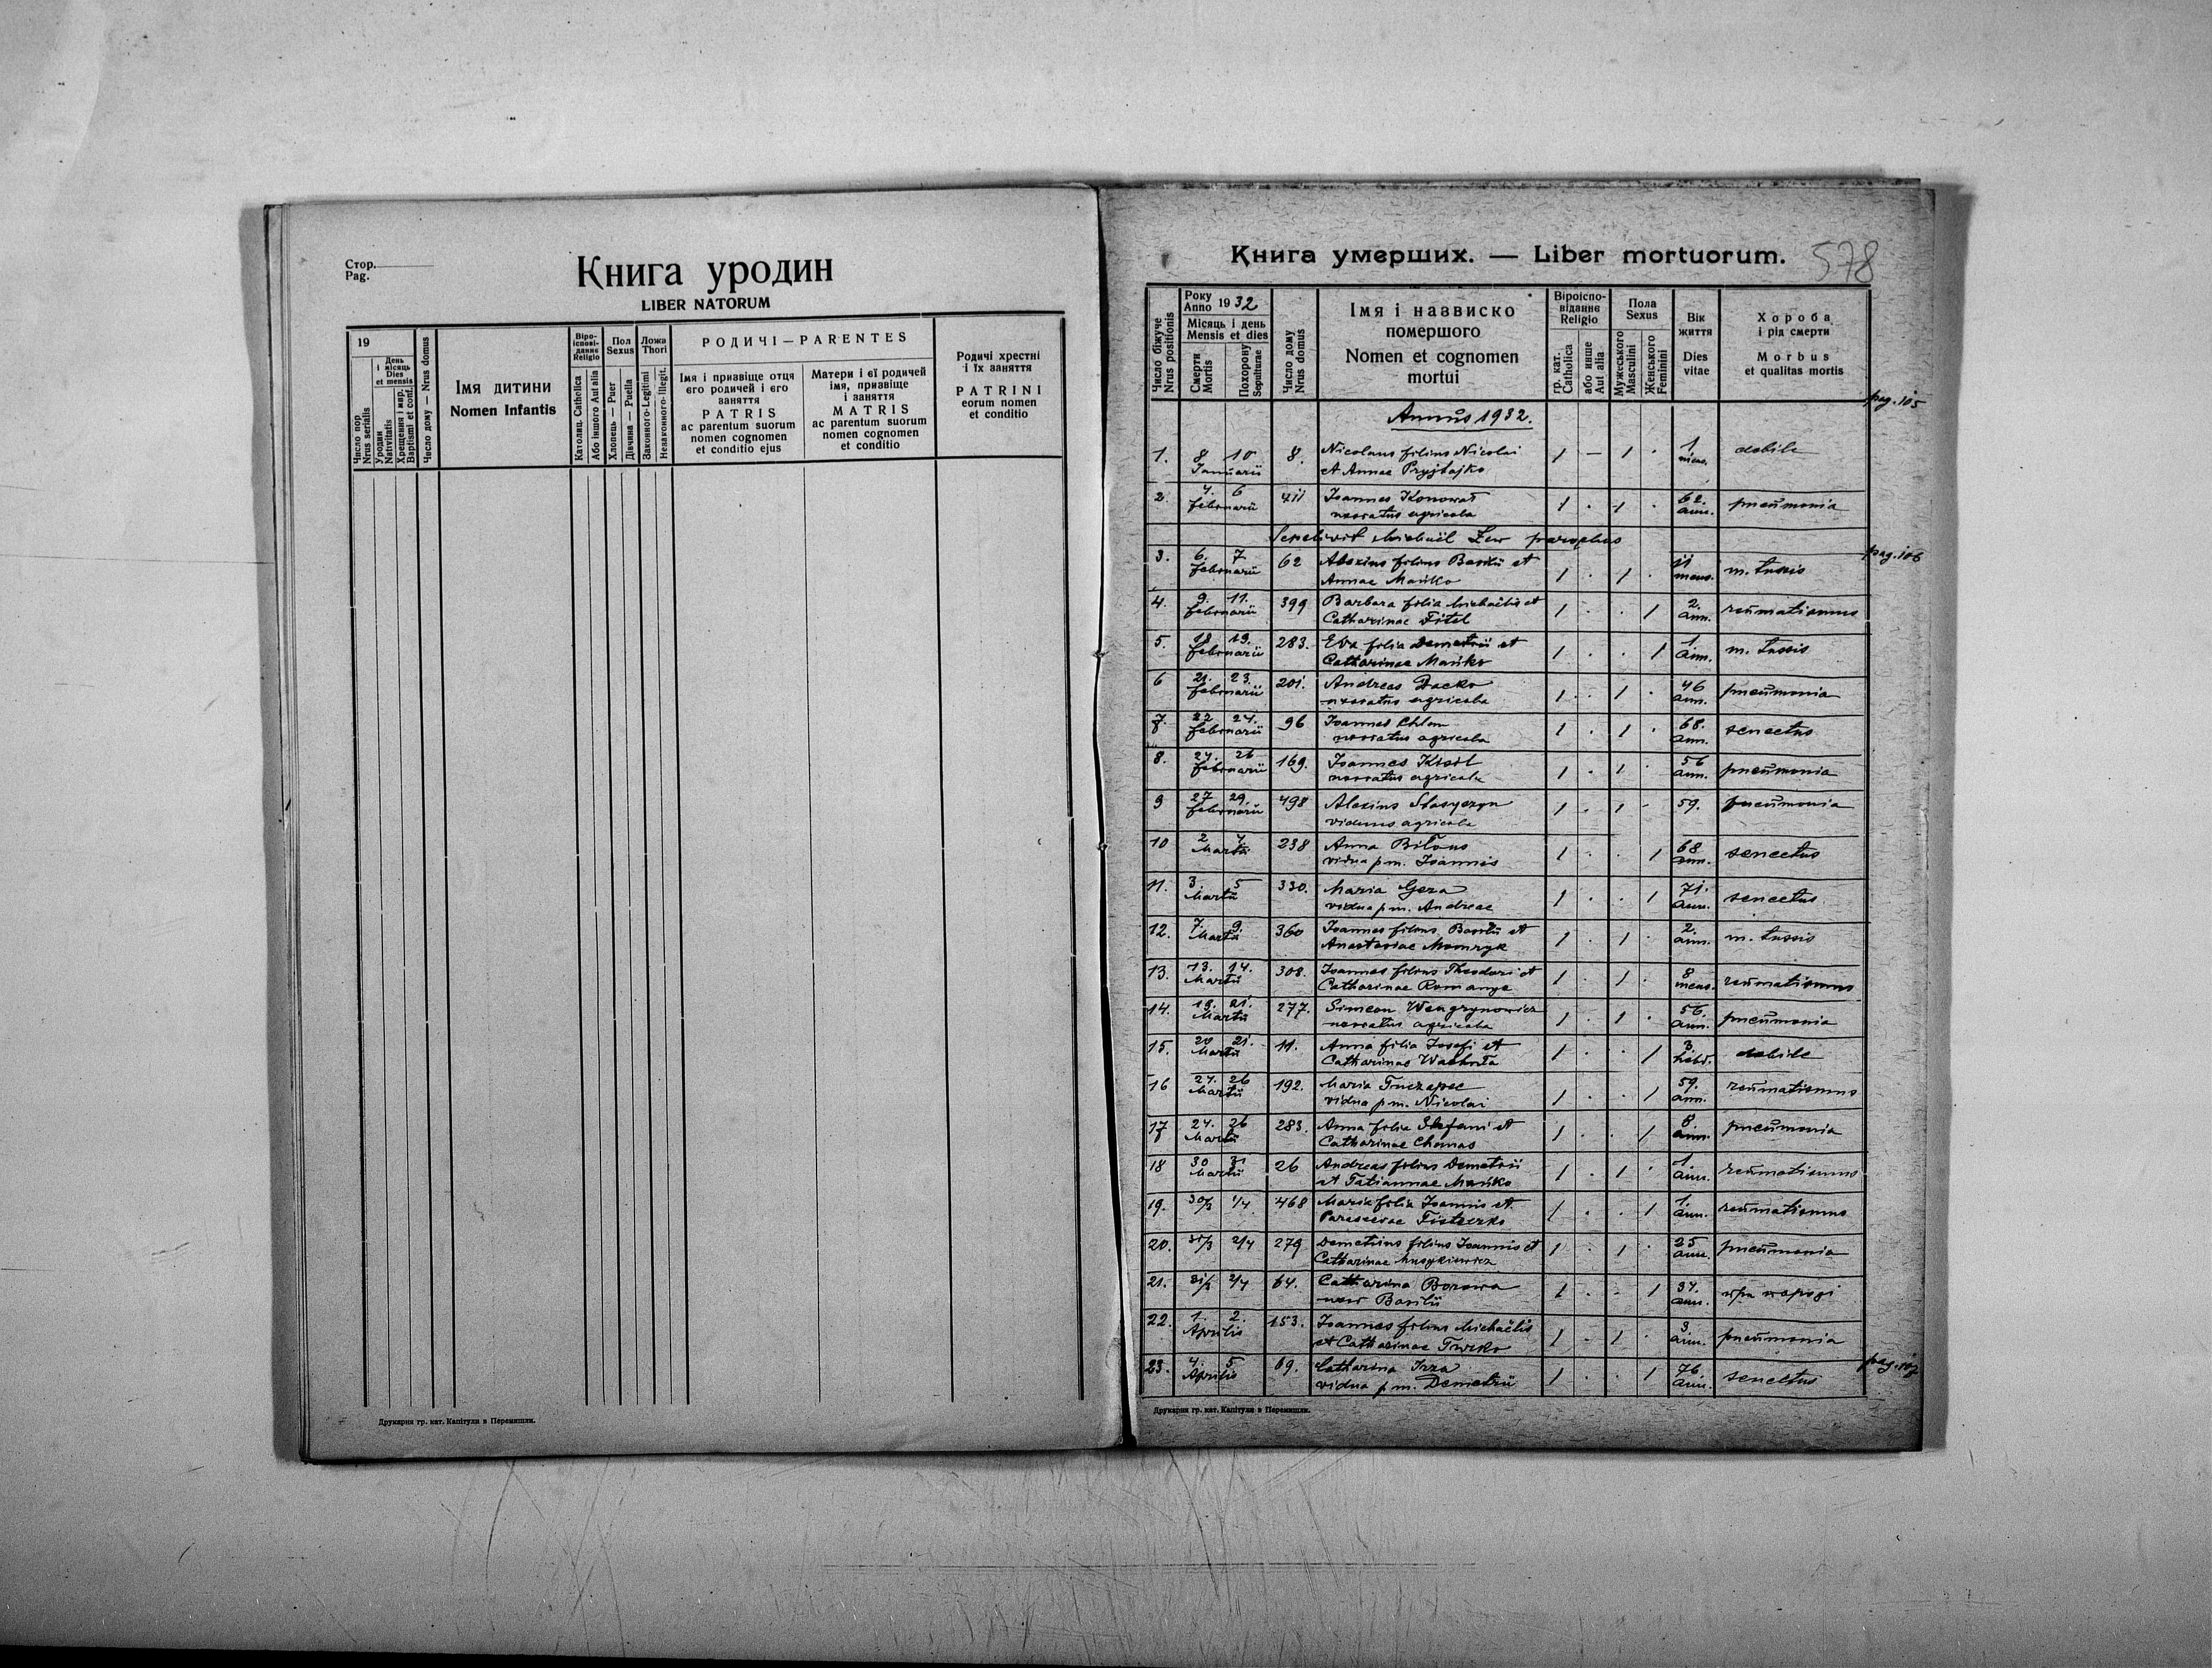 Стор.
Pag.
Книга уродин
LIBER NATORUM
19
Число пор.
Nrus serialis
День і місяць
Dies et mensis
Уродин
Nativitatis
Хрещення і мир.
Baptismi et conf.
Число дому — Nrus domus
Імя дитини
Nomen Infantis
Віроісповіданнє
Religio
Католиц. Catholica
Або іншого Aut alia
Пол
Sexus
Хлопець — Puer
Дівчина — Puella
Ложа
Thori
Законного-Legitimi
Незаконного-Illegit.
РОДИЧІ — PARENTES
Імя і призвіще отця
єго родичей і єго
заняття
PATRIS
ac parentum suorum
nomen cognomen
et conditio ejus
Матери і єї родичей
імя, призвіще
і заняття
MATRIS
ac parentum suorum
nomen cognomen
et conditio
Родичі хрестні
і їх заняття
PATRINI
eorum nomen
et conditio
Друкарня гр. кат. Капітули в Перемишли.
Книга умерших. — Liber mortuorum.
578
Число біжуче
Nrus positionis
Року
Anno 1932
Місяць і день
Mensis et dies
Смерти
Mortis
Похорону
Sepulturae
Число дому
Nrus domus
Імя і назвиско
помершого
Nomen et cognomen
mortui
Віроісповіданне
Religio
гр. кат.
Catholica
або инше
Aut alia
Пола
Sexus
Мужеського
Masculini
Женського
Feminini
Вік
життя
Dies
vitae
Хороба
і рід смерти
Morbus
et qualitas mortis
pag. 105
Annus 1932.
1. 8 10 Januarii 8. Nicolaus filius Nicolai 1 — 1 . 1 mens. debile
et Annae Pryjtajko
2. 4. 6 februarii 411 Joannes Konowal 1 . 1 . 62. ann. pneumonia
uxoratus agricola
Sepelivit Michaël Lew parochus
pag. 106
3. 6. 7 februarii 62 Alexius filius Basilii et 1 . 1 . 11 mens. m. tussis
Annae Mańko
4. 9. 11. februarii 399 Barbara filia Michaëlis et 1 . . 1 2. ann. reumatismus
Catharinae Fitel
5. 18 19. februarii 283. Eva filia Demetrii et 1 . . 1 1 ann. m. tussis
Catharinae Mańko
6 21. 23. februarii 201. Andreas Dacko 1 . 1 . 46 ann. pneumonia
uxoratus agricola
7. 22 24. februarii 96 Joannes 1 . 1 . 68. ann. senectus
uxoratus agricola
8. 24. 26 februarii 169. Joannes Kisil 1 . 1 . 56 ann. pneumonia
uxoratus agricola
9 27 29. februarii 498 Alexius Stasyszyn 1 . 1 - 59. pneumonia
viduus agricola
10 2 4. Martii 238 Anna Biłous 1 . . 1 68 ann. senectus
vidua p m. Joannis
11. 3. 5 Martii 330. Maria Gera 1 . . 1 71. ann. senectus
vidua p m. Andreae
12. 7. 9. Martii 360 Joannes filius Basilii et 1 . 1 . 2. ann. m. tussis
Anastasiae Momryk
13. 13. 14. Martii 308. Joannes filius Theodori et 1 . 1 . 8 mens. reumatismus
Catharinae Romanyc
14. 19. 21. Martii 277. Simeon Wengrynowicz 1 . 1 . 56. ann. pneumonia
uxoratus agricola
15. 20 21. Martii 11. Anna filia Josefi et 1 . . 1 3. hebd. debile
Catharinae
16 24. 26 Martii 192. Maria Truczapec 1 . . 1 59. ann. reumatismus
vidua p m. Nicolai
17 24. 26 Martii 283. Anna filia Stefani et 1 . . 1 8 ann. pneumonia
Catharinae Chomas
18 30 31 Martii 26 Andreas filius Demetrii 1 . 1 . 1 ann. reumatismus
et Tatiannae Mańko
19. 30/3 1/4 468 Maria filia Joannis et 1 . . 1 1. ann. reumatismus
Parascevae
20. 31/3 2/4 279 Demetrius filius Joannis et 1 . 1 . 25 ann. pneumonia
Catharinae
21. 31/3 2/4 64. Catharina Borowa 1 . - 1 34. ann.
uxor Basilii
22. 1. 2. Aprilis 153. Joannes filius Michaëlis 1 - 1 . 3. ann. pneumonia
et Catharinae
23. 4. 5 Aprilis 69. Catharina 1 . . 1 76. ann. senectus
vidua p m. Demetrii
pag. 107
Друкарня гр. кат. Капітули в Перемишли.